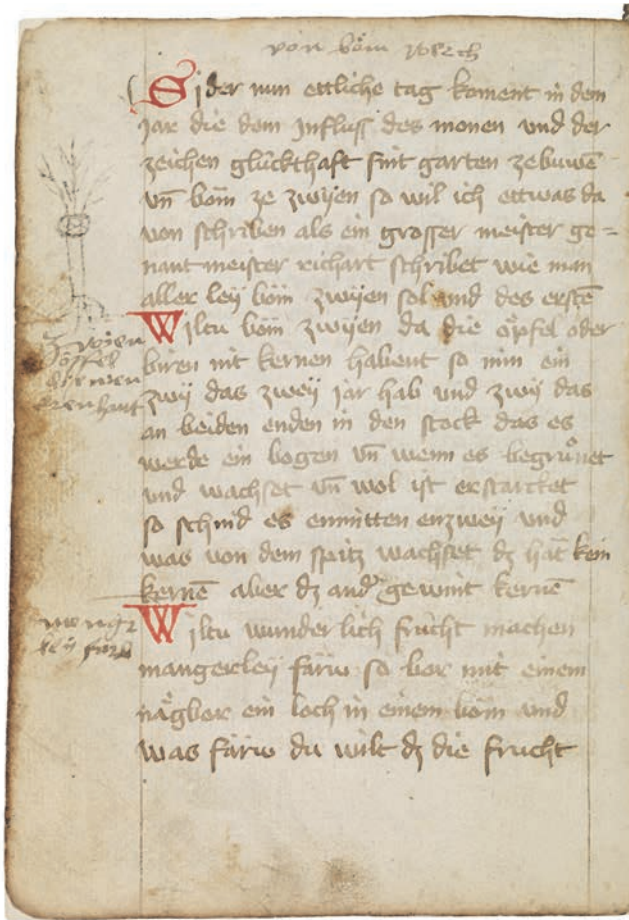 von böm werch
Sider nun ettliche tag koment in dem
jar die dem Influss des monen und der
zeichen glückthaft sint garten zebuwē
vn̄ böm ze zwyen so wil ich ettwas da
von schriben als ein grosser meister ge=
nant meister richart schribet wie man
aller leÿ böm zwÿen sol und des erstē
Wiltu böm zwÿen da die öpfel oder
biren nit kernen habent so nim ein
zwÿ das zweÿ jar hab und zwÿ das
an beiden enden in den stock das es
werde ein bogen vn̄ wenn es begrůnet
und wachset vn̄ wol ist erstarcket
so schnid es enmitten enzweÿ und
was von dem spitz wachset dz hat kein
kernē aber dz and' gewint kernē
Wiltu wunderlich frucht machen
mangerleÿ färw so bor mit einem
nägbor ein loch in einem böm und
was färw du wilt dz die frucht
zwÿen
öpffel
menger
leÿ farw